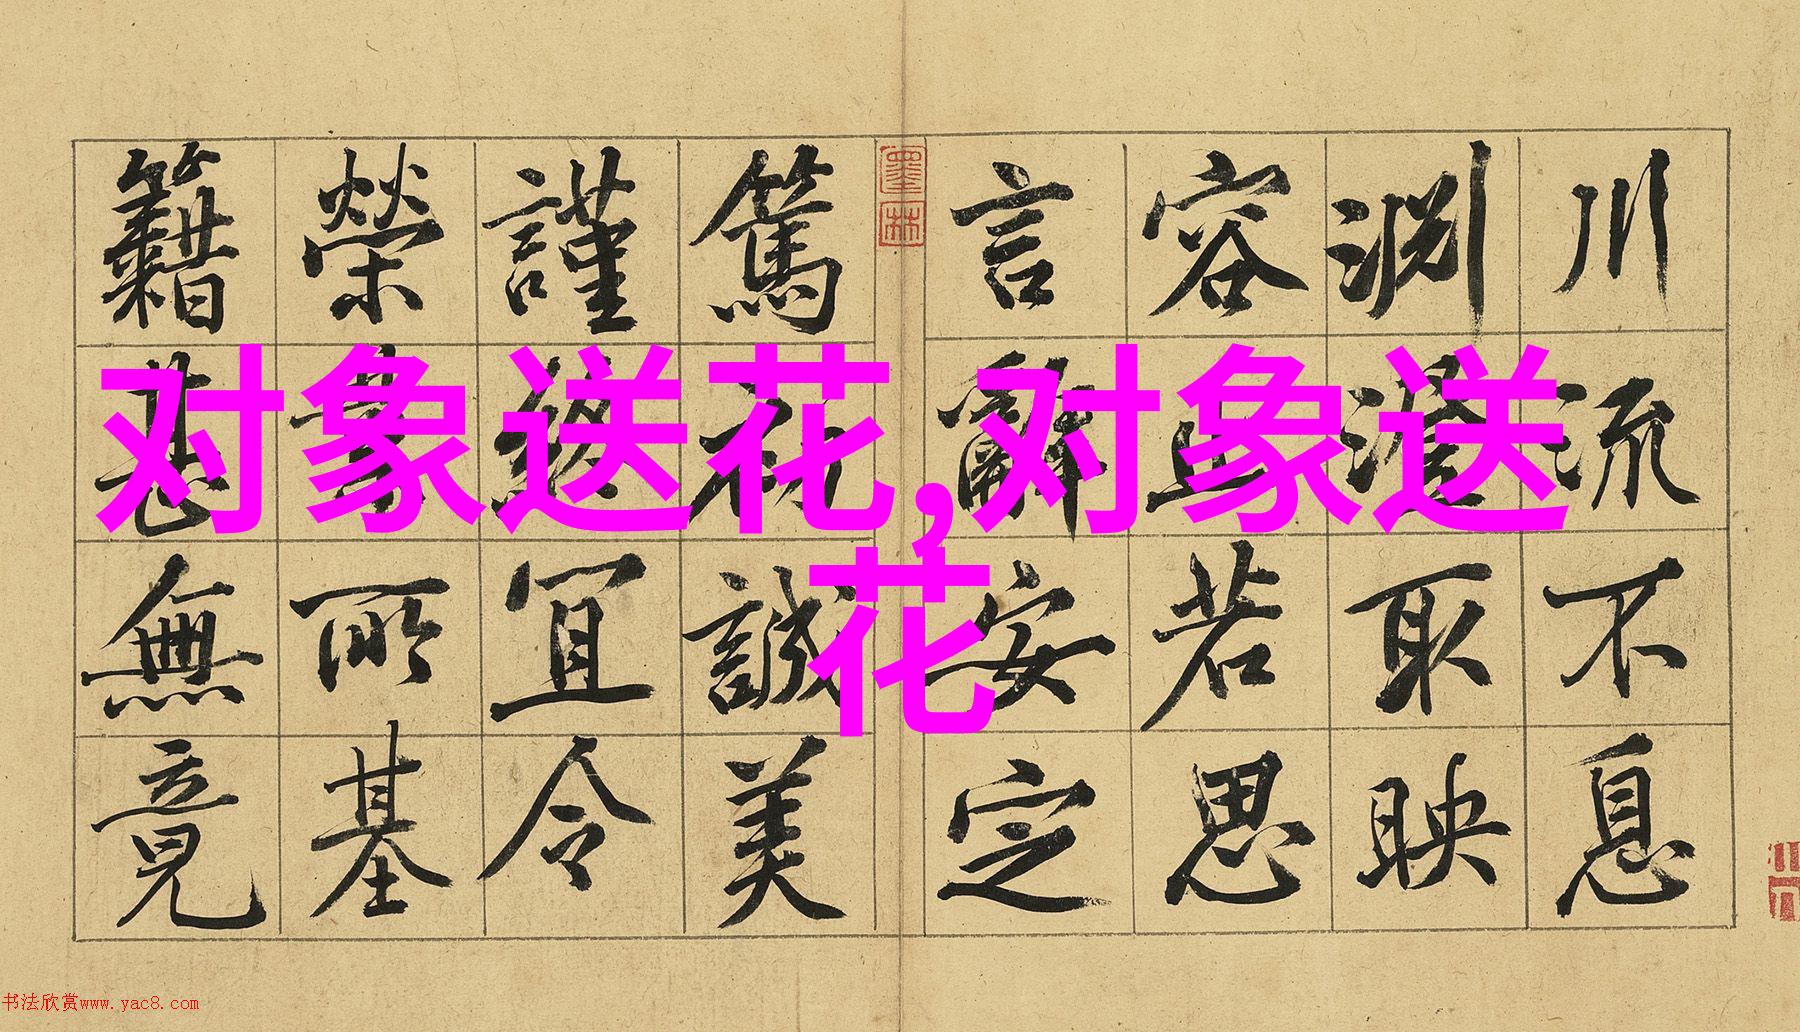 川流不息
淵澄取映
容止若思
言辭安定
墨林
篤初誠美
謹終宜令
榮業所基
籍甚無竟
对象送花,对象送
花
书法欣赏www.yac8.com